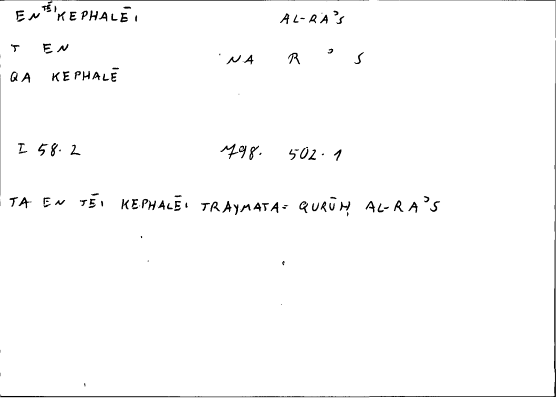 EN TĒI KEPHALĒI AL-RAʾS
T EN
NA R ʾ S
QA KEPHALĒ
I 58.2 798. 502.1
TA EN TĒI KEPHALĒI TRAYMATA= QURŪḤ AL-RAʾS